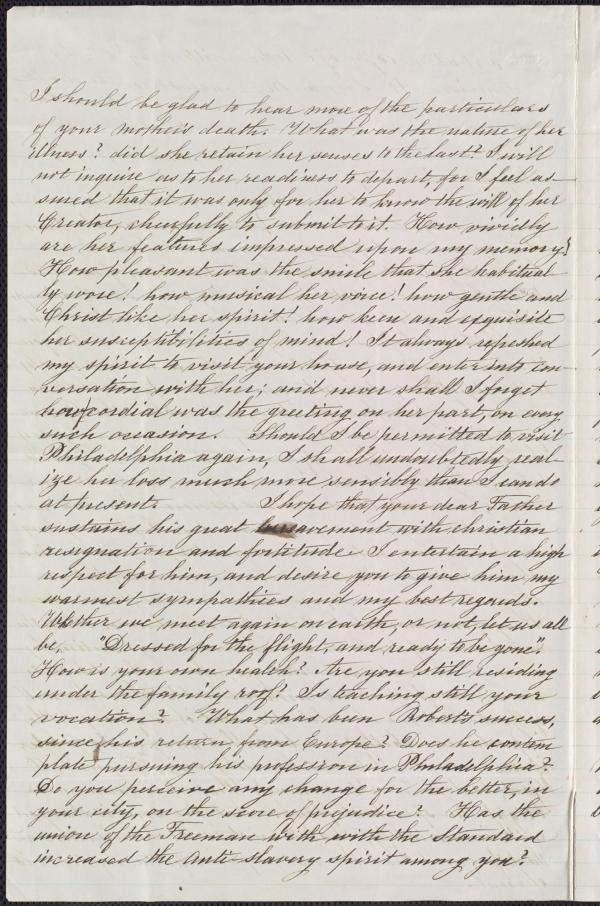 I should be glad to hear more of the particulars
of your mother's death. What was the nature of her
illness? did she retain her senses to the last? I will
not inquire as to her readiness to depart, for I feel as-
sured that it was only for her to know the will of her
Creator, cheerfully to submit to it. How vividly
are her features impressed upon my memory!
How pleasant was the smile that she habitual
ly wore! how musical her voice! how gentle and
Christ like her spirit! how keen and exquisite
her susceptibilities of mind! It always refreshed
my spirit to visit your house, and enter into con-
versation with her; and never shall I forget
how cordial was the greeting on her part, on every
such occasion. Should I be permitted to visit
Philadelphia again, I shall undoubtedly real
ize her loss much more sensibly than I can do
at present. I hope that your dear Father
sustains his great bereavement with christian
resignation and fortitude I entertain a high
respect for him, and desire you to give him my
warmest sympathies and my best regards.
Whether we meet again on earth, or not, let us all
be, "Dressed for the flight, and ready to be gone".
How is your own health? Are you still residing
under the family roof? Is teaching still your
vocation? What has been Robert's success,
since his return from Europe? Does he contem
plate pursuing his profession in Philadelphia?
Do you perceive any change for the better, in
your city, on the score of prejudice? Has the
union of the Freeman with with the Standard
increased the Anti-slavery spirit among you?